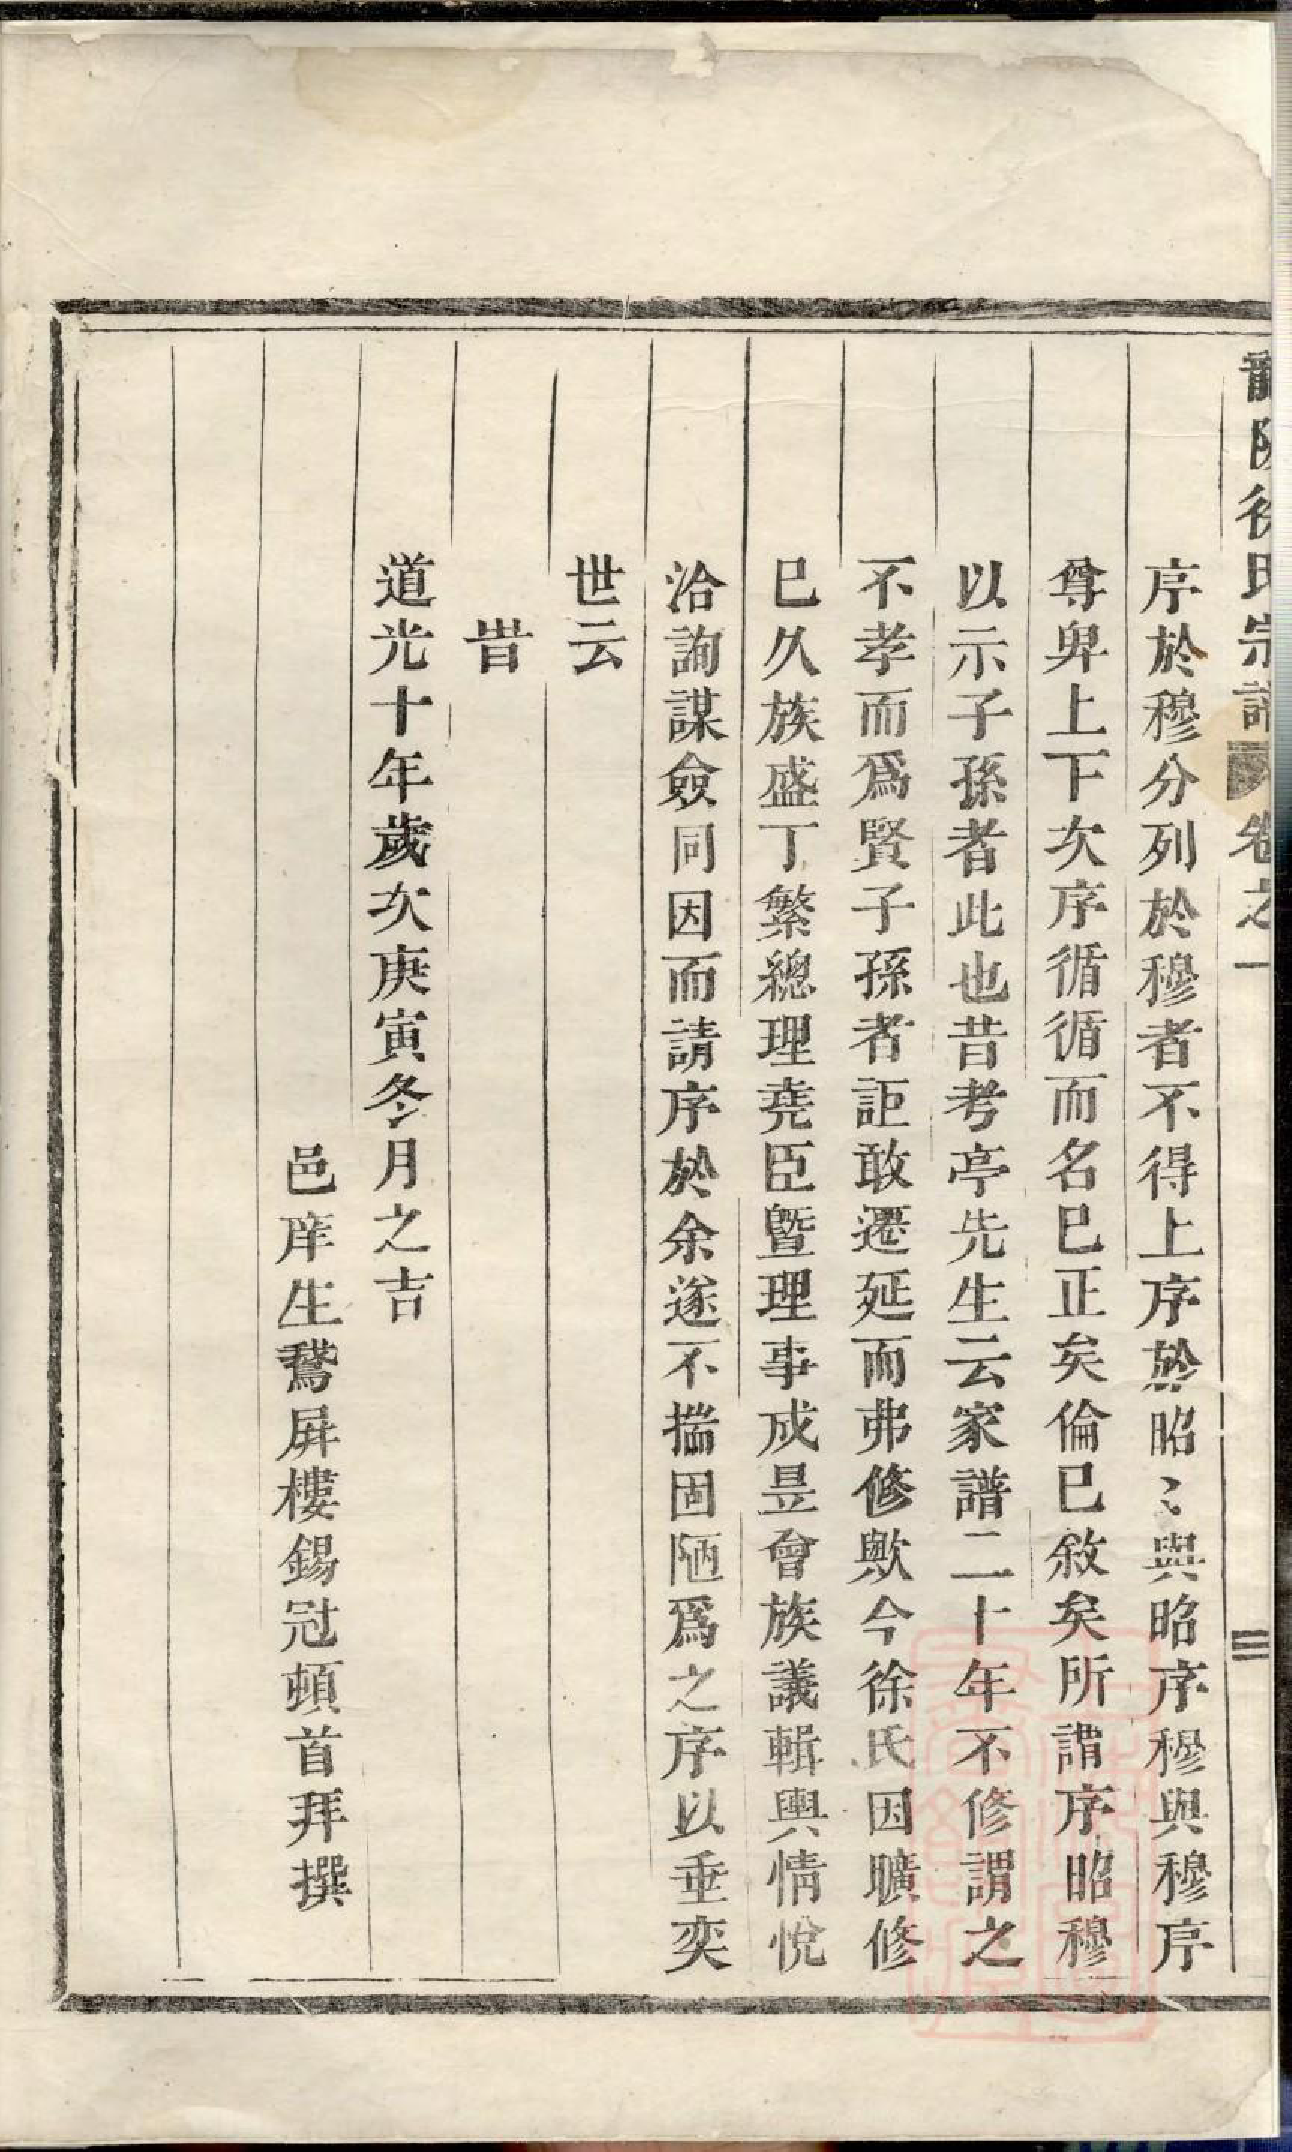 徐氏宗譜 卷之一 三
序於穆分列於穆者不得上序於昭〻與昭序穆與穆序
尊卑上下次序循循而名已正矣倫已敘矣所謂序昭穆
以示子孫者此也昔考亭先生云家譜二十年不修謂之
不孝而爲賢子孫者詎敢遷延而弗修歟今徐氏因曠修
已久族盛丁繁總理堯臣暨理事成昱會族議輯輿情悅
洽詢謀僉同因而請序於余遂不揣固陋爲之序以垂奕
世云
旹
道光十年歲次庚寅冬月之吉
邑庠生鵞屏樓錫冠頓首拜撰